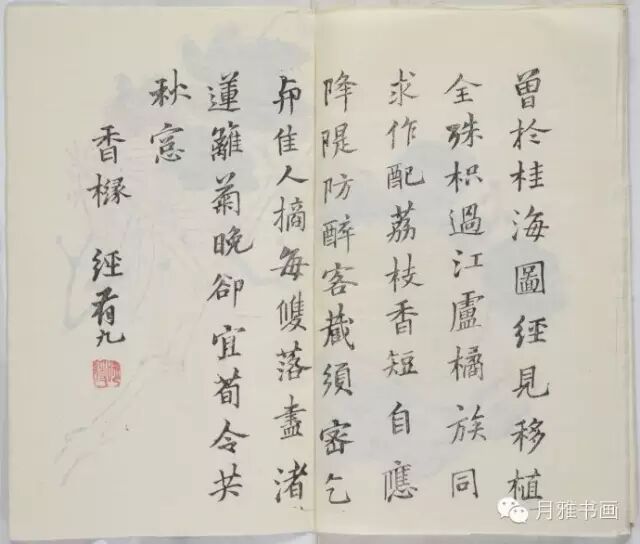 曾於桂海圖經見移植
全殊枳過江盧橘族同
求作配荔枝香短自應
降隄防醉客藏須密乞
佳人摘每雙落盡渚
蓮籬菊晚卻宜荀令共
秋窓
香櫞 經
月雅书画